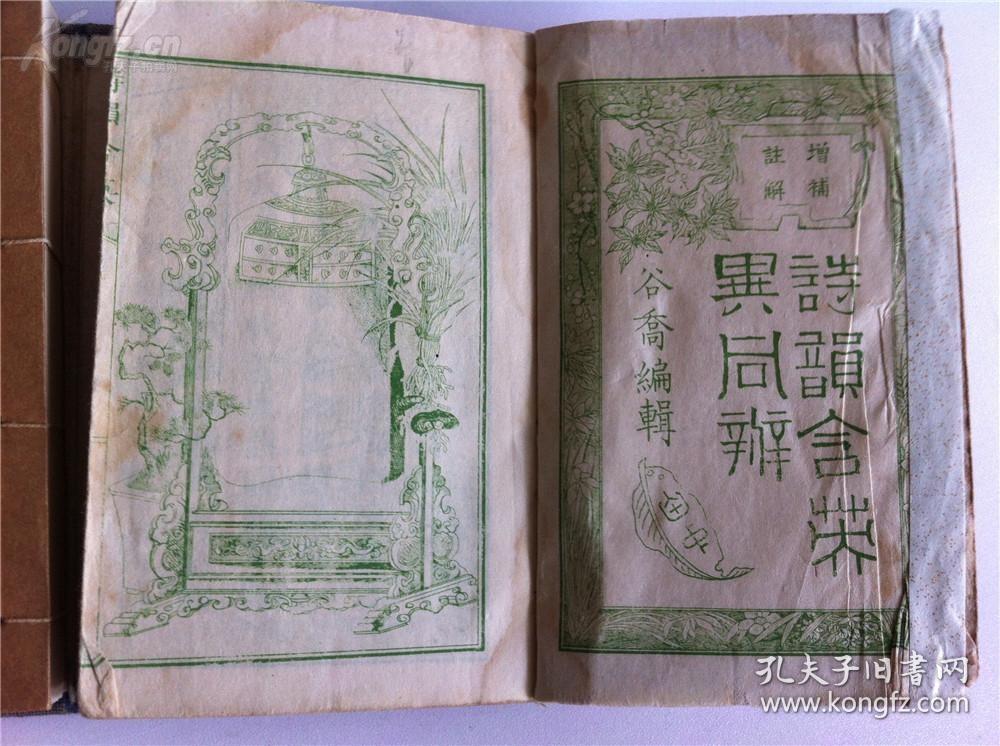 增補
註解
詩韻含英
異同辨
谷喬編輯
Kongfz.cn
孔夫子旧書网
www.kongfz.com